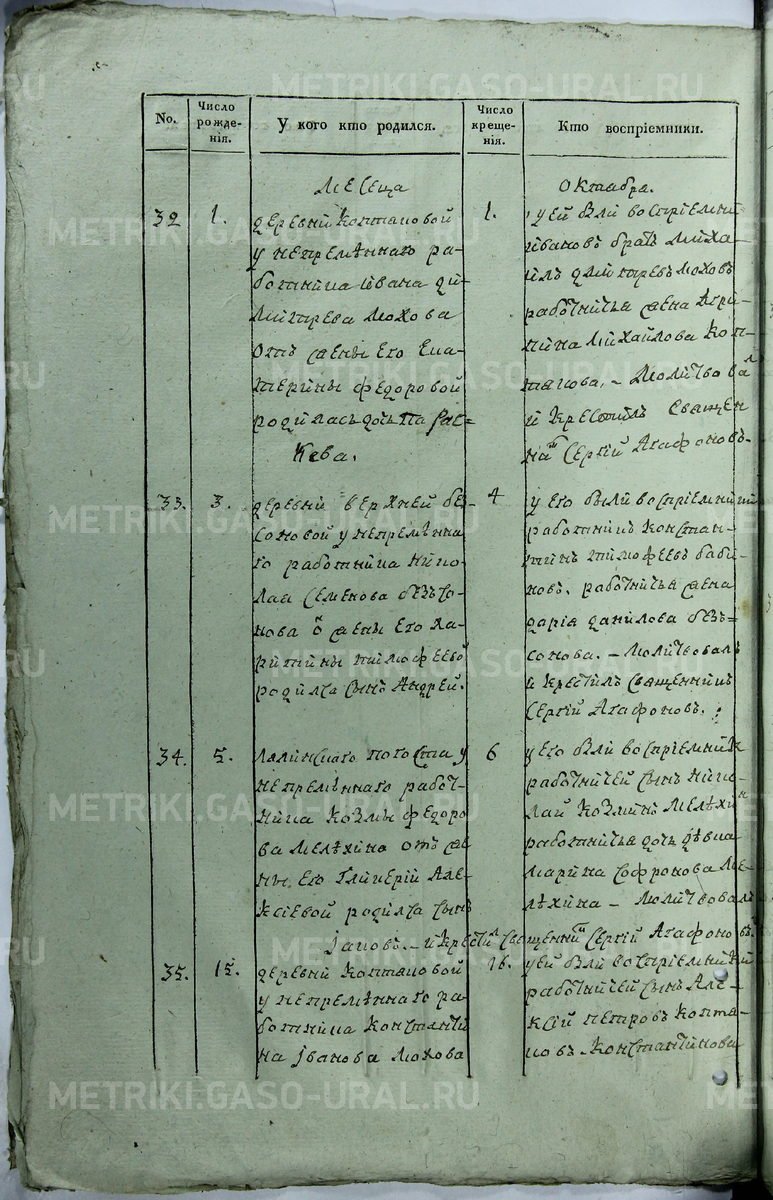 METRIKI.GASO-URAL.RU
No.
Число рожде-
нія.
У кого кто родился.
Число
креще-
нія.
Кто воспріемники.
месеца
октября.
32
1.
деревни Коптяковой
у непремѣннаго ра-
ботника ивана ди-
митрева мохова
отъ жены его ека-
терины федоровой
родилась дочь Парас-
кева.
1.
уей были воспріемни
ивановъ братъ миха-
илъ димитревъ моховъ
работничья жена агри-
пина михайлова коп-
тякова. - молитвовал
и крестилъ священ
никъ Сергій Агафоновъ.
33.
3.
деревни верхней без-
соновой у непремѣнна
го работника нико-
лая семенова безъсо-
нова о жены его ха-
ритины тимофеево
родился сынъ Андрей.
4
у его были воспріемники
работникъ констан-
тинъ тимофеевъ баби-
новъ. работничья жена
дарія данилова безъ-
сонова. - молитвовалъ
и крестилъ священникъ
Сергій Агафоновъ.
34.
5.
Лялинскаго погоста у
непремѣннаго работ-
ника козмы федоро
ва мелѣхина отъ же
ны его Гликерій Але-
ксіевой родился сынъ
Іаковъ. - и крестил священник Сергій Агафоновъ.
6
у его были воспріемник
работничей сынъ нико-
лай козминъ мелѣхин
работничья дочь дѣвка
марина софронова ме-
лѣхина - молитвовал
35.
15.
деревни коптяковой
у непремѣннаго ра-
ботника константи
на іванова мохова
16.
уей были воспріемники
работничей сынъ але-
ксій петровъ коптя-
ковъ. константинова